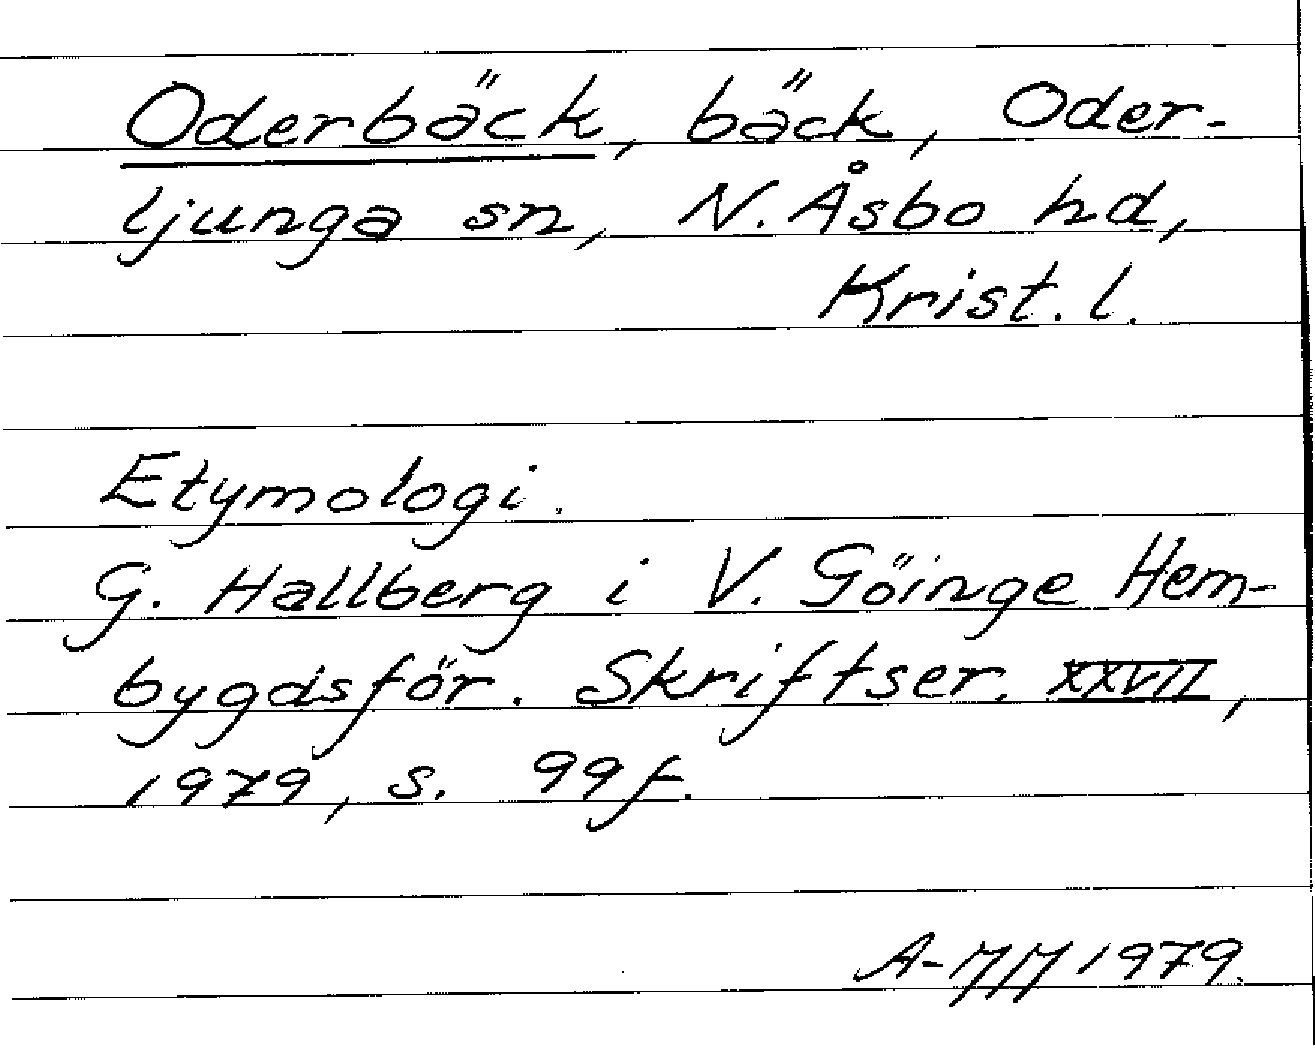 Oderbäck, bäck, Oder-
ljunga sn, N. Åsbo hd,
Krist. l.
Etymologi.
G. Hallberg i V. Göinge Hem-
bygdsför. Skriftser. XXVII,
1979, s. 99f.
1979.